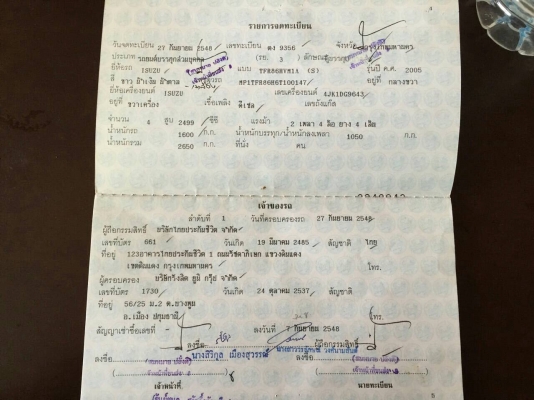 รายการจดทะเบียน
วันจดทะเบียน 27 กันยายน 2548 เลขทะเบียน ตง 9356 จังหวัด กรุงเทพมหานคร
ประเภท รถยนต์บรรทุกส่วนบุคคล (รย. 3 ) ลักษณะ
ยี่ห้อรถ ISUZU แบบ TFR86HVM1A (S) รุ่นปี ค.ศ. 2005
สี ขาว น้ำเงิน น้ำตาล MP1TFR86H6T100147 อยู่ที่ กลางขวา
ยี่ห้อเครื่องยนต์ ISUZU เลขเครื่องยนต์ 4JK1DG9643
อยู่ที่ ขวาเครื่อง เชื้อเพลิง ดีเซล เลขถังแก๊ส
จำนวน 4 สูบ 2499 ซีซี แรงม้า 2 เพลา 4 ล้อ ยาง 4 เส้น
น้ำหนักรถ 1600 ก.ก. น้ำหนักบรรทุก/น้ำหนักลงเพลา 1050 ก.ก.
น้ำหนักรวม 2650 ก.ก. ที่นั่ง คน
เจ้าของรถ
ลำดับที่ 1 วันที่ครอบครองรถ 27 กันยายน 2548
ผู้ถือกรรมสิทธิ์ บริษัทไทยประกันชีวิต จำกัด
เลขที่บัตร 661 วันเกิด 19 มีนาคม 2485 สัญชาติ ไทย
ที่อยู่ 123อาคารไทยประกันชีวิต ถนนรัชดาภิเษก แขวงดินแดง
เขตดินแดง กรุงเทพมหานคร โทร.
ผู้ครอบครอง บริษัทรังสิต ฟูม กรุ๊ป จำกัด
เลขที่บัตร 1730 วันเกิด 24 ตุลาคม 2537 สัญชาติ
ที่อยู่ 56/25 ม.2 ต.บางคูน
อ.เมือง ปทุมธานี โทร.
สัญญาเช่าซื้อเลขที่ - ลงวันที่ 7 กันยายน 2548
ลงชื่อ ผู้ถือกรรมสิทธิ์
ลงชื่อ นางสิริกุล เมืองสุวรรณ์ ลงชื่อ
เจ้าหน้าที่ นายทะเบียน
9